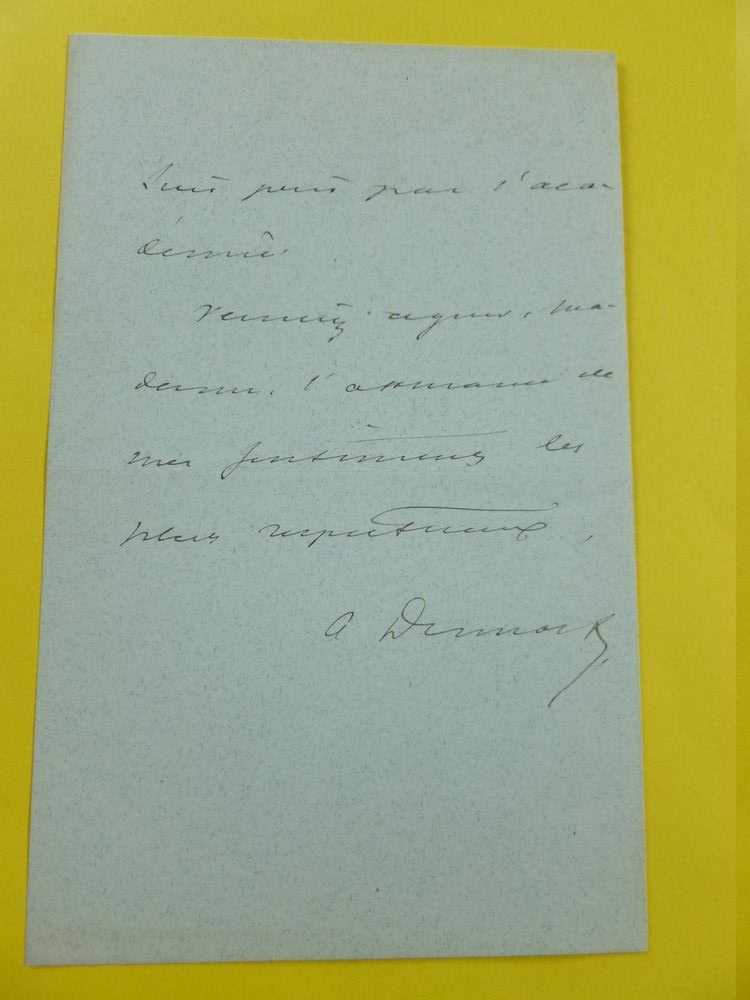 pour l'aca-
démie.
Veuillez agréer, Ma-
dame, l'assurance de
mes sentiments les
plus respectueux,
A